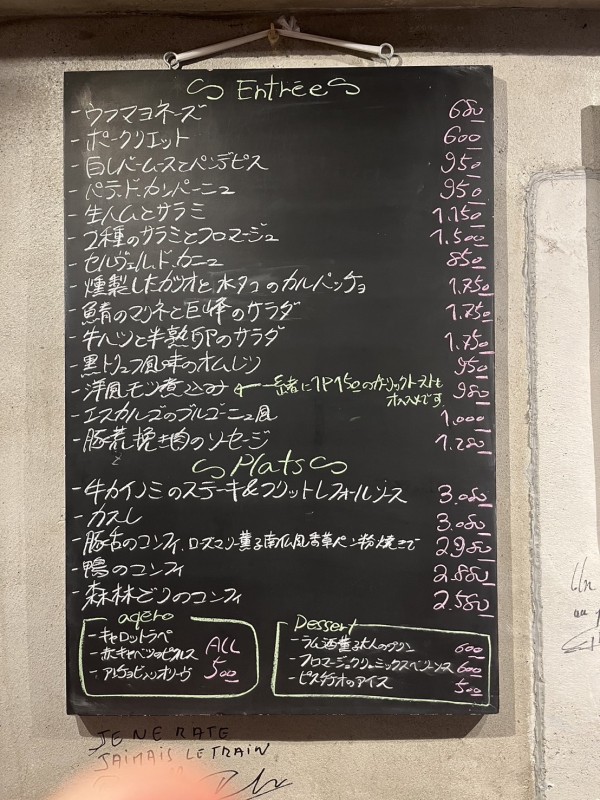 Entrée
- ウフマヨネーズ 680
- ポークリエット 600
- 白レバームースとパンデピス 950
- パテ.ド.カンパーニュ 950
- 生ハムとサラミ 1.150
- 2種のサラミとフロマージュ 1.500
- セルヴェル.ド.カニュ 850
- 燻製したカツオと水タコのカルパッチョ 1.750
- 鯖のマリネと巨峰のサラダ 1.750
- 牛ハツと半熟卵のサラダ 1.750
- 黒トリュフ風味のオムレツ 950
- 洋風モツ煮込み ← 一緒に1P150のガーリックトーストも 980
オススメです
- エスカルゴのブルゴーニュ風 1.000
- 豚荒挽き肉のソーセージ 1.280
Plats
- 牛カイノミのステーキ&フリットレフォールソース 3.080
- カスレ 3.080
- 豚舌のコンフィ.ローズマリー薫る南仏風香草パン粉焼きで 2.980
- 鴨のコンフィ 2.880
- 森林どりのコンフィ 2.580
apéro
- キャロットラペ
- 赤キャベツのピクルス
- アンチョビ入りオリーヴ
ALL
500
Dessert
- ラム酒薫る大人のプリン 600
- フロマージュクリュ ミックスベリーソース 600
- ピスタチオのアイス 500
JE NE RATE
JAIMAIS LE TRAIN